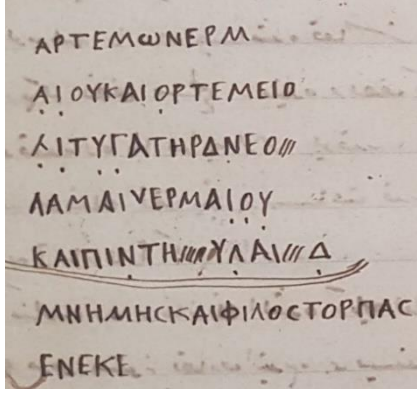 ΑΡΤΕΜωΝΕΡΜ
ΑΙΟΥΚΑΙΟΡΤΕΜΕΙΟ
ΛΙΤΥΓΑΤΗΡΔΝΕΟ///
ΛΑΜΑΙΝΕΡΜΑΙΟΥ
ΚΑΙΠΙΝΤΗ////ΥΛΑΙ///Δ
ΜΝΗΜΗϹΚΑΙΦΙΛΟϹΤΟΡΠΑϹ
ΕΝΕΚΕ